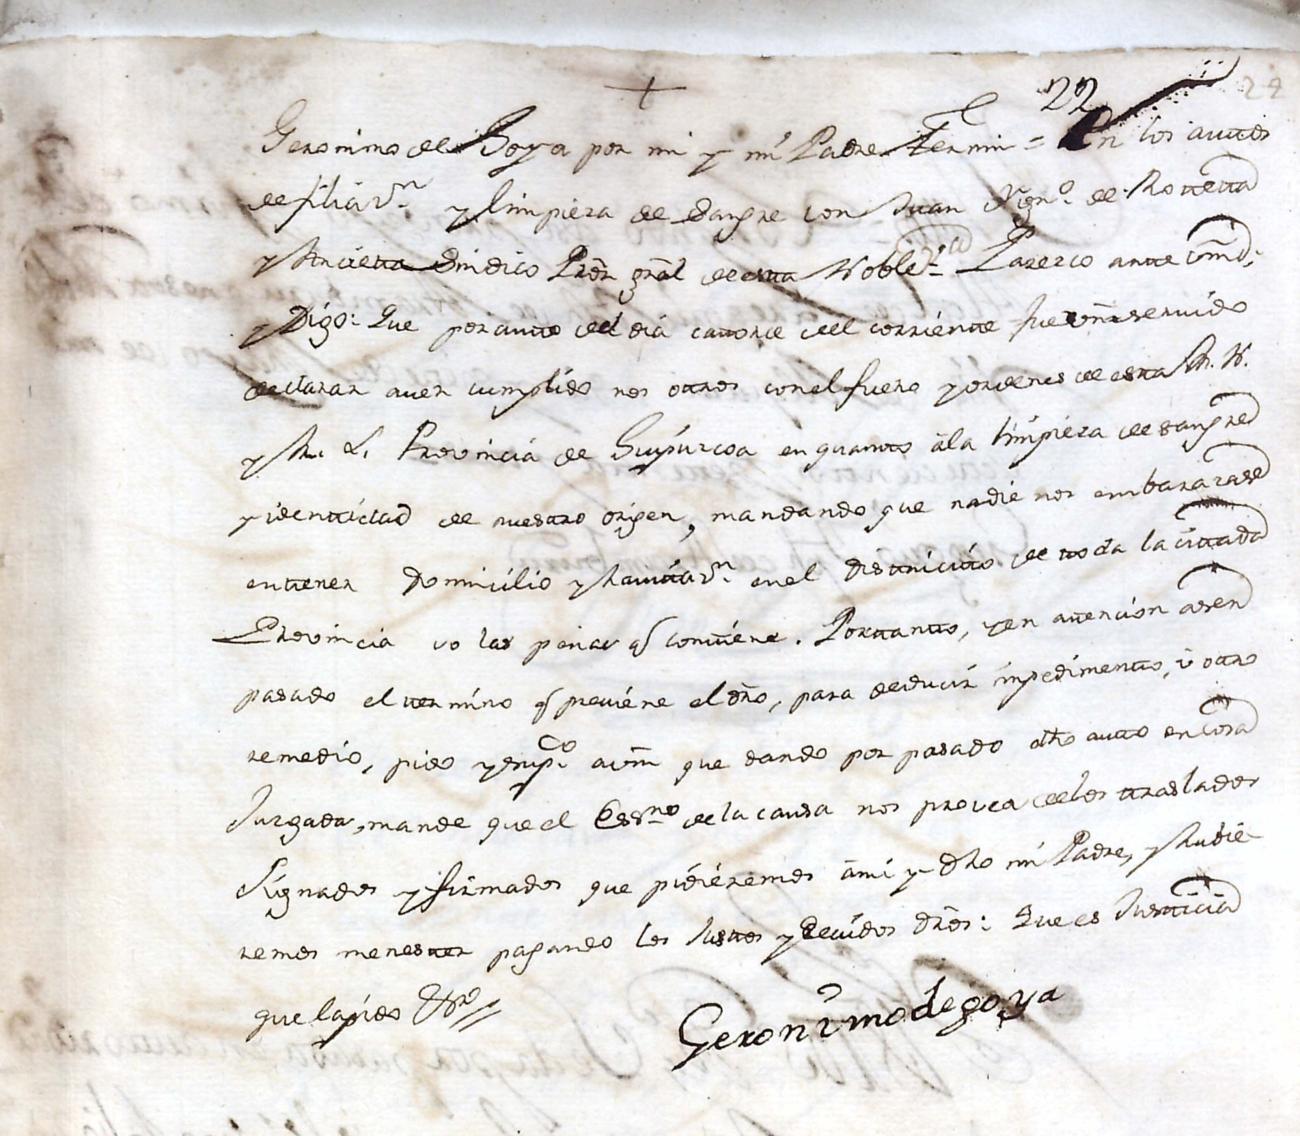 +
22
24
Geronimo de Goya por mi y mi Padre Fermin = En los auttos
de filiazn. y limpieza de sangre con Juan Ygno. de
y Ancieta Sindico Pror. gral de esta Noble Va. ante Vmd;
y Digo: Que por autto del dia catorce del corriente fue Vm. servido
declarar aver cumplido nos otros con el fuero y ordenes de esta M. N.
y M. L. Provincia de Guipuzcoa en quanto ã la limpieza de sangre
y identtidad de nuestro origen, mandando que nadie nos embarazase
en tener Domicilio y havittazn. en el disttricto de toda la cittada
Provincia so las penas q contiene. Por tantto, y en attencion a ser
pasado el ttermino q previene el dro, para deducir impedimento, ù otro
remedio, pido y suppco. a Vm que dando por pasado dho autto en cosa
Juzgada, mande que el Essno. de la causa nos provea de los traslados
Signados y firmados que pidieremos ã mi y dho mi Padre, y hubie-
remos menestter pagando los Justtos y devidos dros: Que es Justticia
que la pido &ra
Geronimo de goya